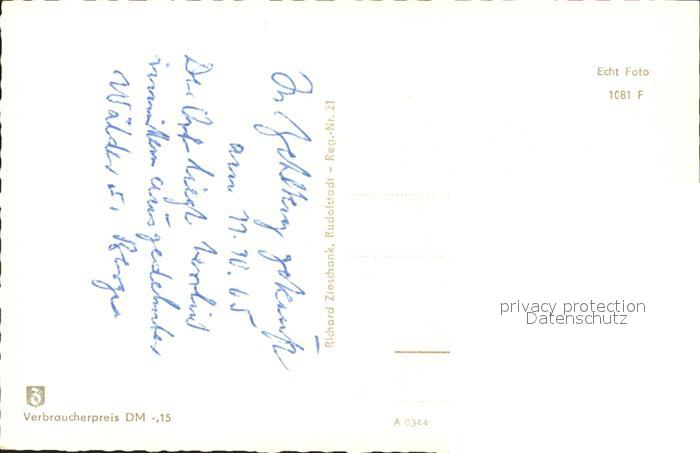 am 11.10.65
Der Ort liegt herrlich
inmitten ausgedehnter
Wälder u. Berge
Richard Zieschank, Rudolstadt – Reg.-Nr. 21
Echt Foto
1081 F
privacy protection
Datenschutz
Verbraucherpreis DM -,15
A 0344